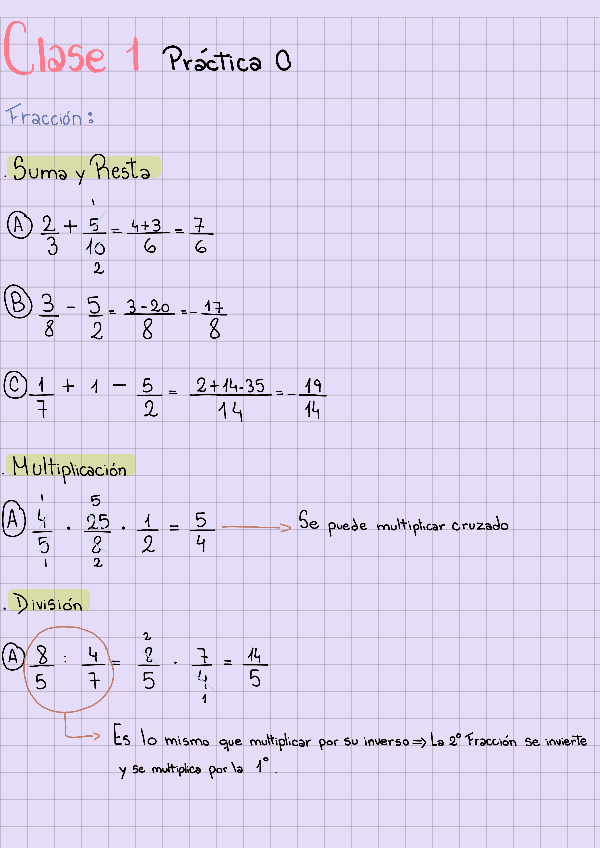 Clase 1 Práctica 0
Fracción:
. Suma y Resta
(A) 2/3 + 5/10 = 4+3/6 = 7/6
1
2
(B) 3/8 - 5/2 = 3-20/8 = -17/8
(C) 1/7 + 1 - 5/2 = 2+14-35/14 = -19/14
. Multiplicación
1 5
(A) 4/5 . 25/8 . 1/2 = 5/4 → Se puede multiplicar cruzado
1 2
. División
2
(A) 8/5 : 4/7 = 8/5 . 7/4 = 14/5
1
Es lo mismo que multiplicar por su inverso ⇒ La 2° Fracción se invierte
y se multiplica por la 1°.